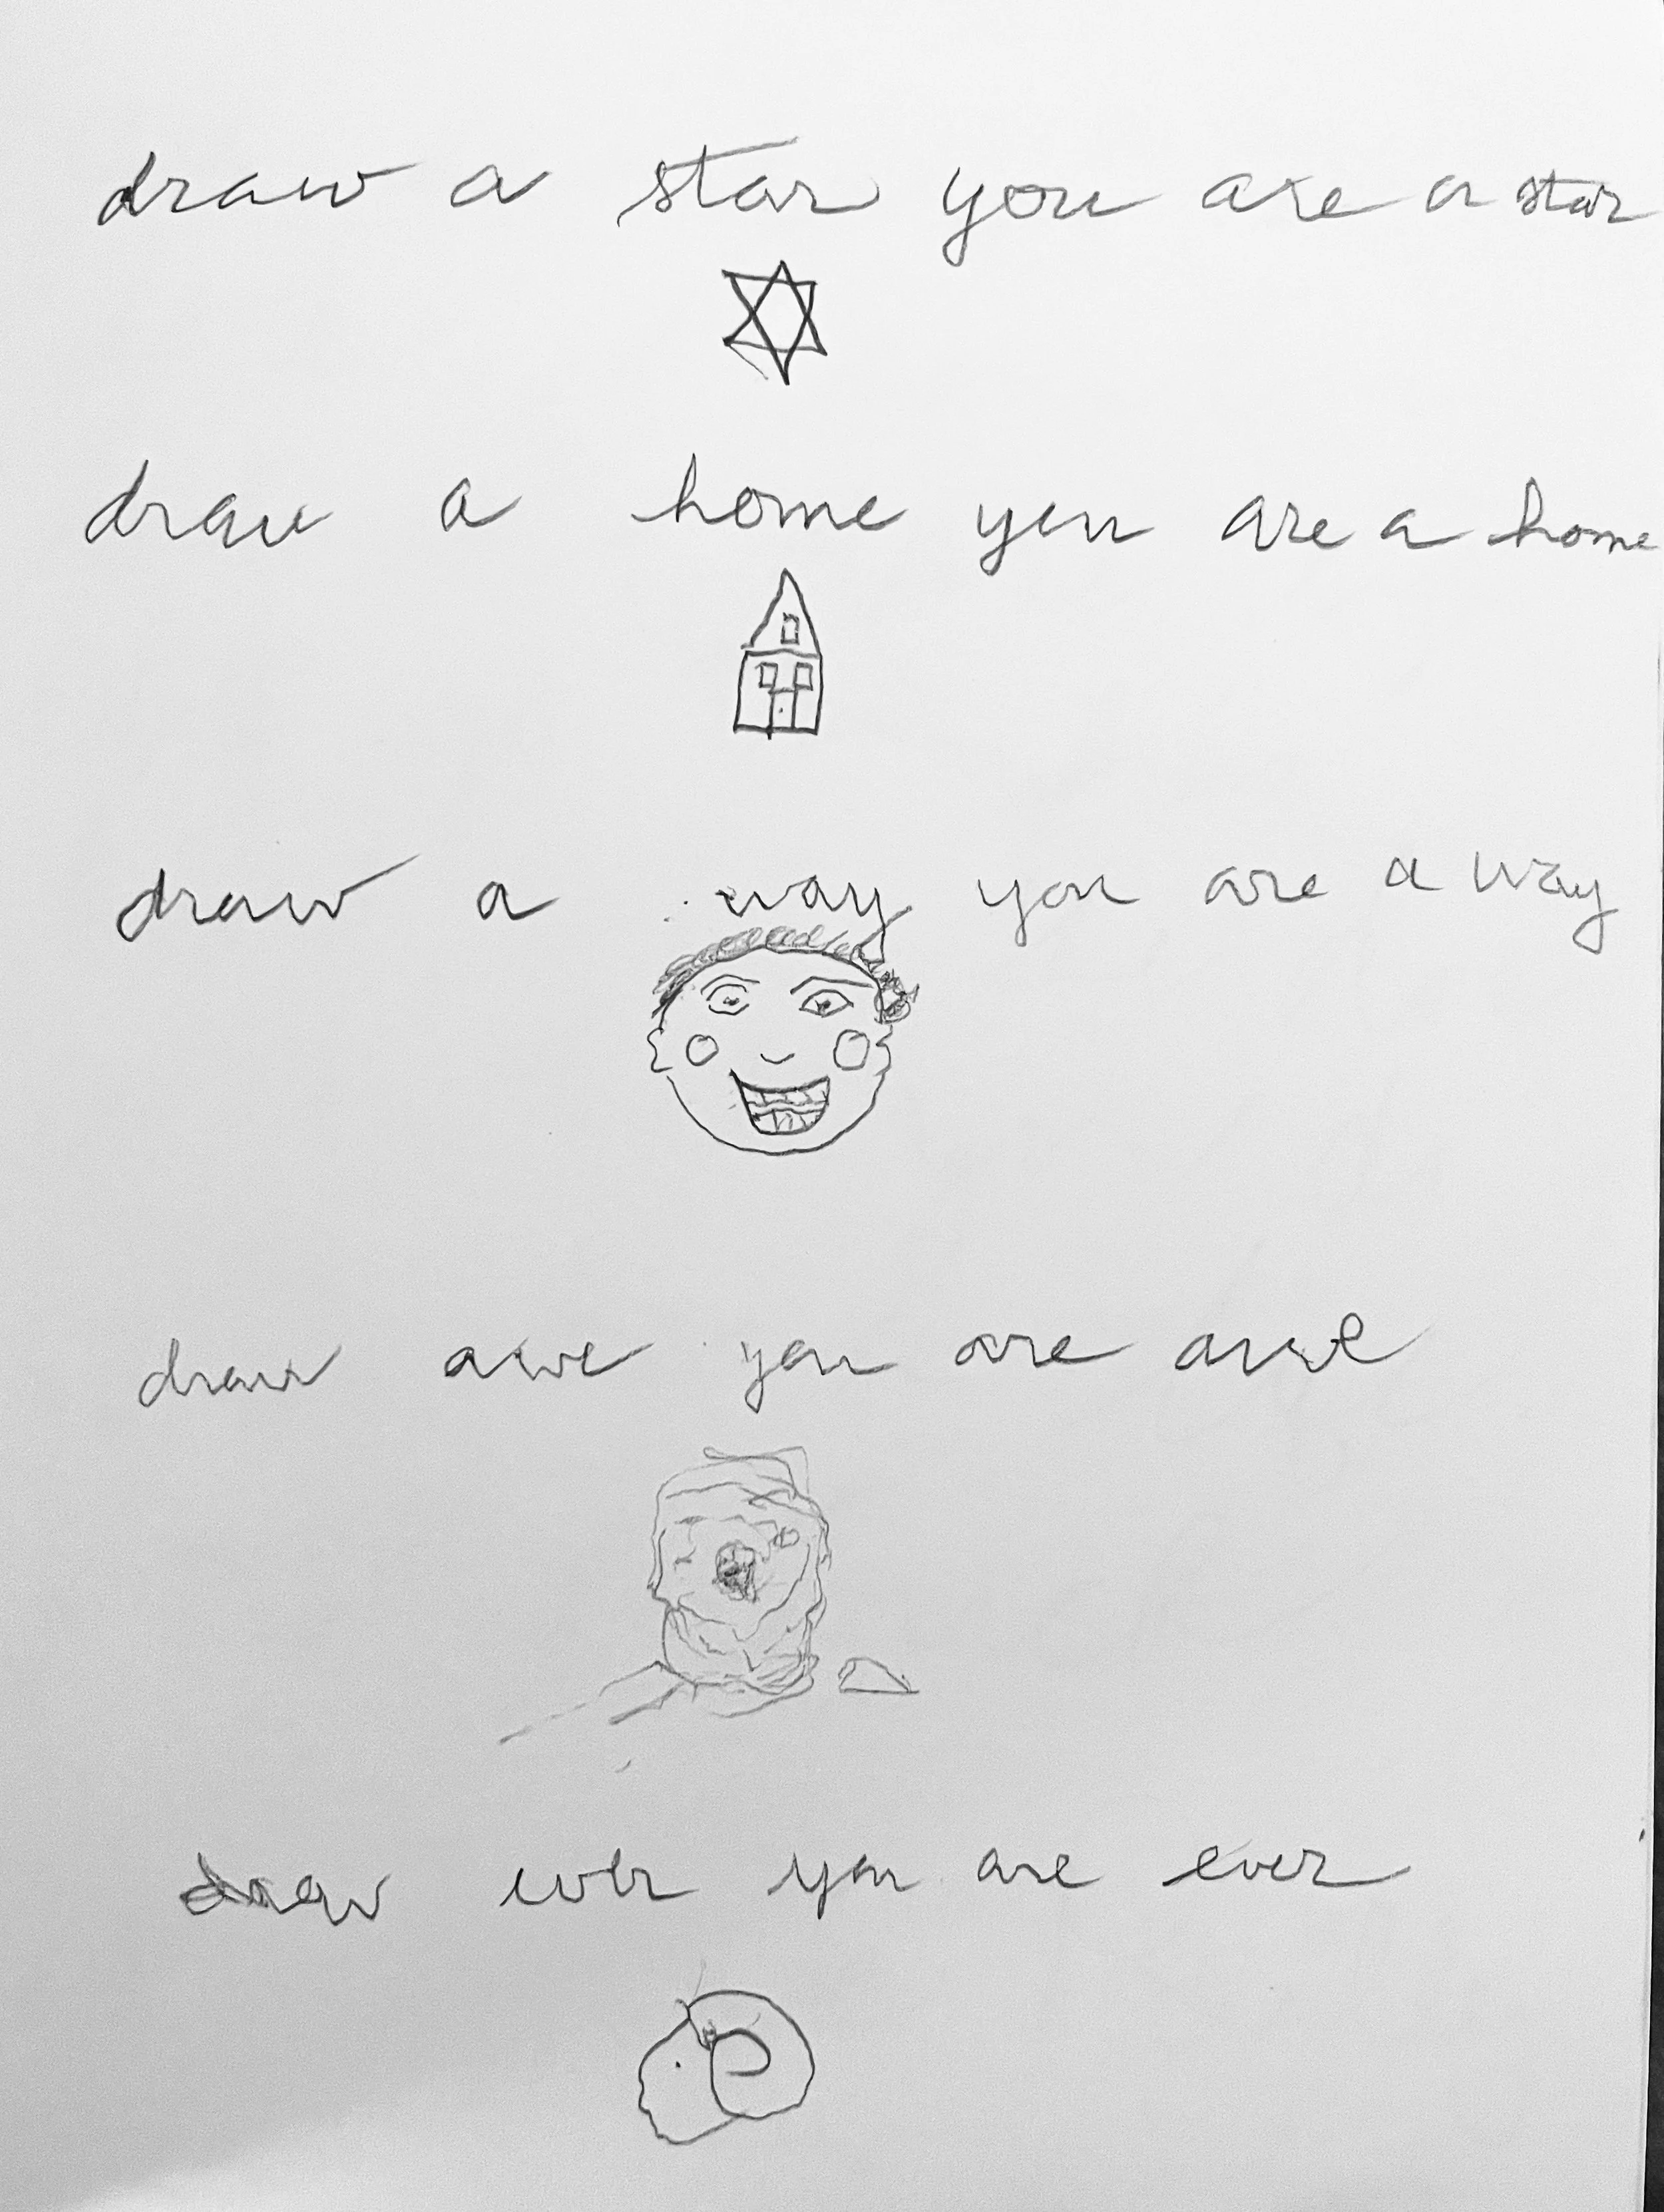 draw a star you are a star
draw a home you are a home
draw a way you are a way
draw awe you are awe
draw ever you are ever